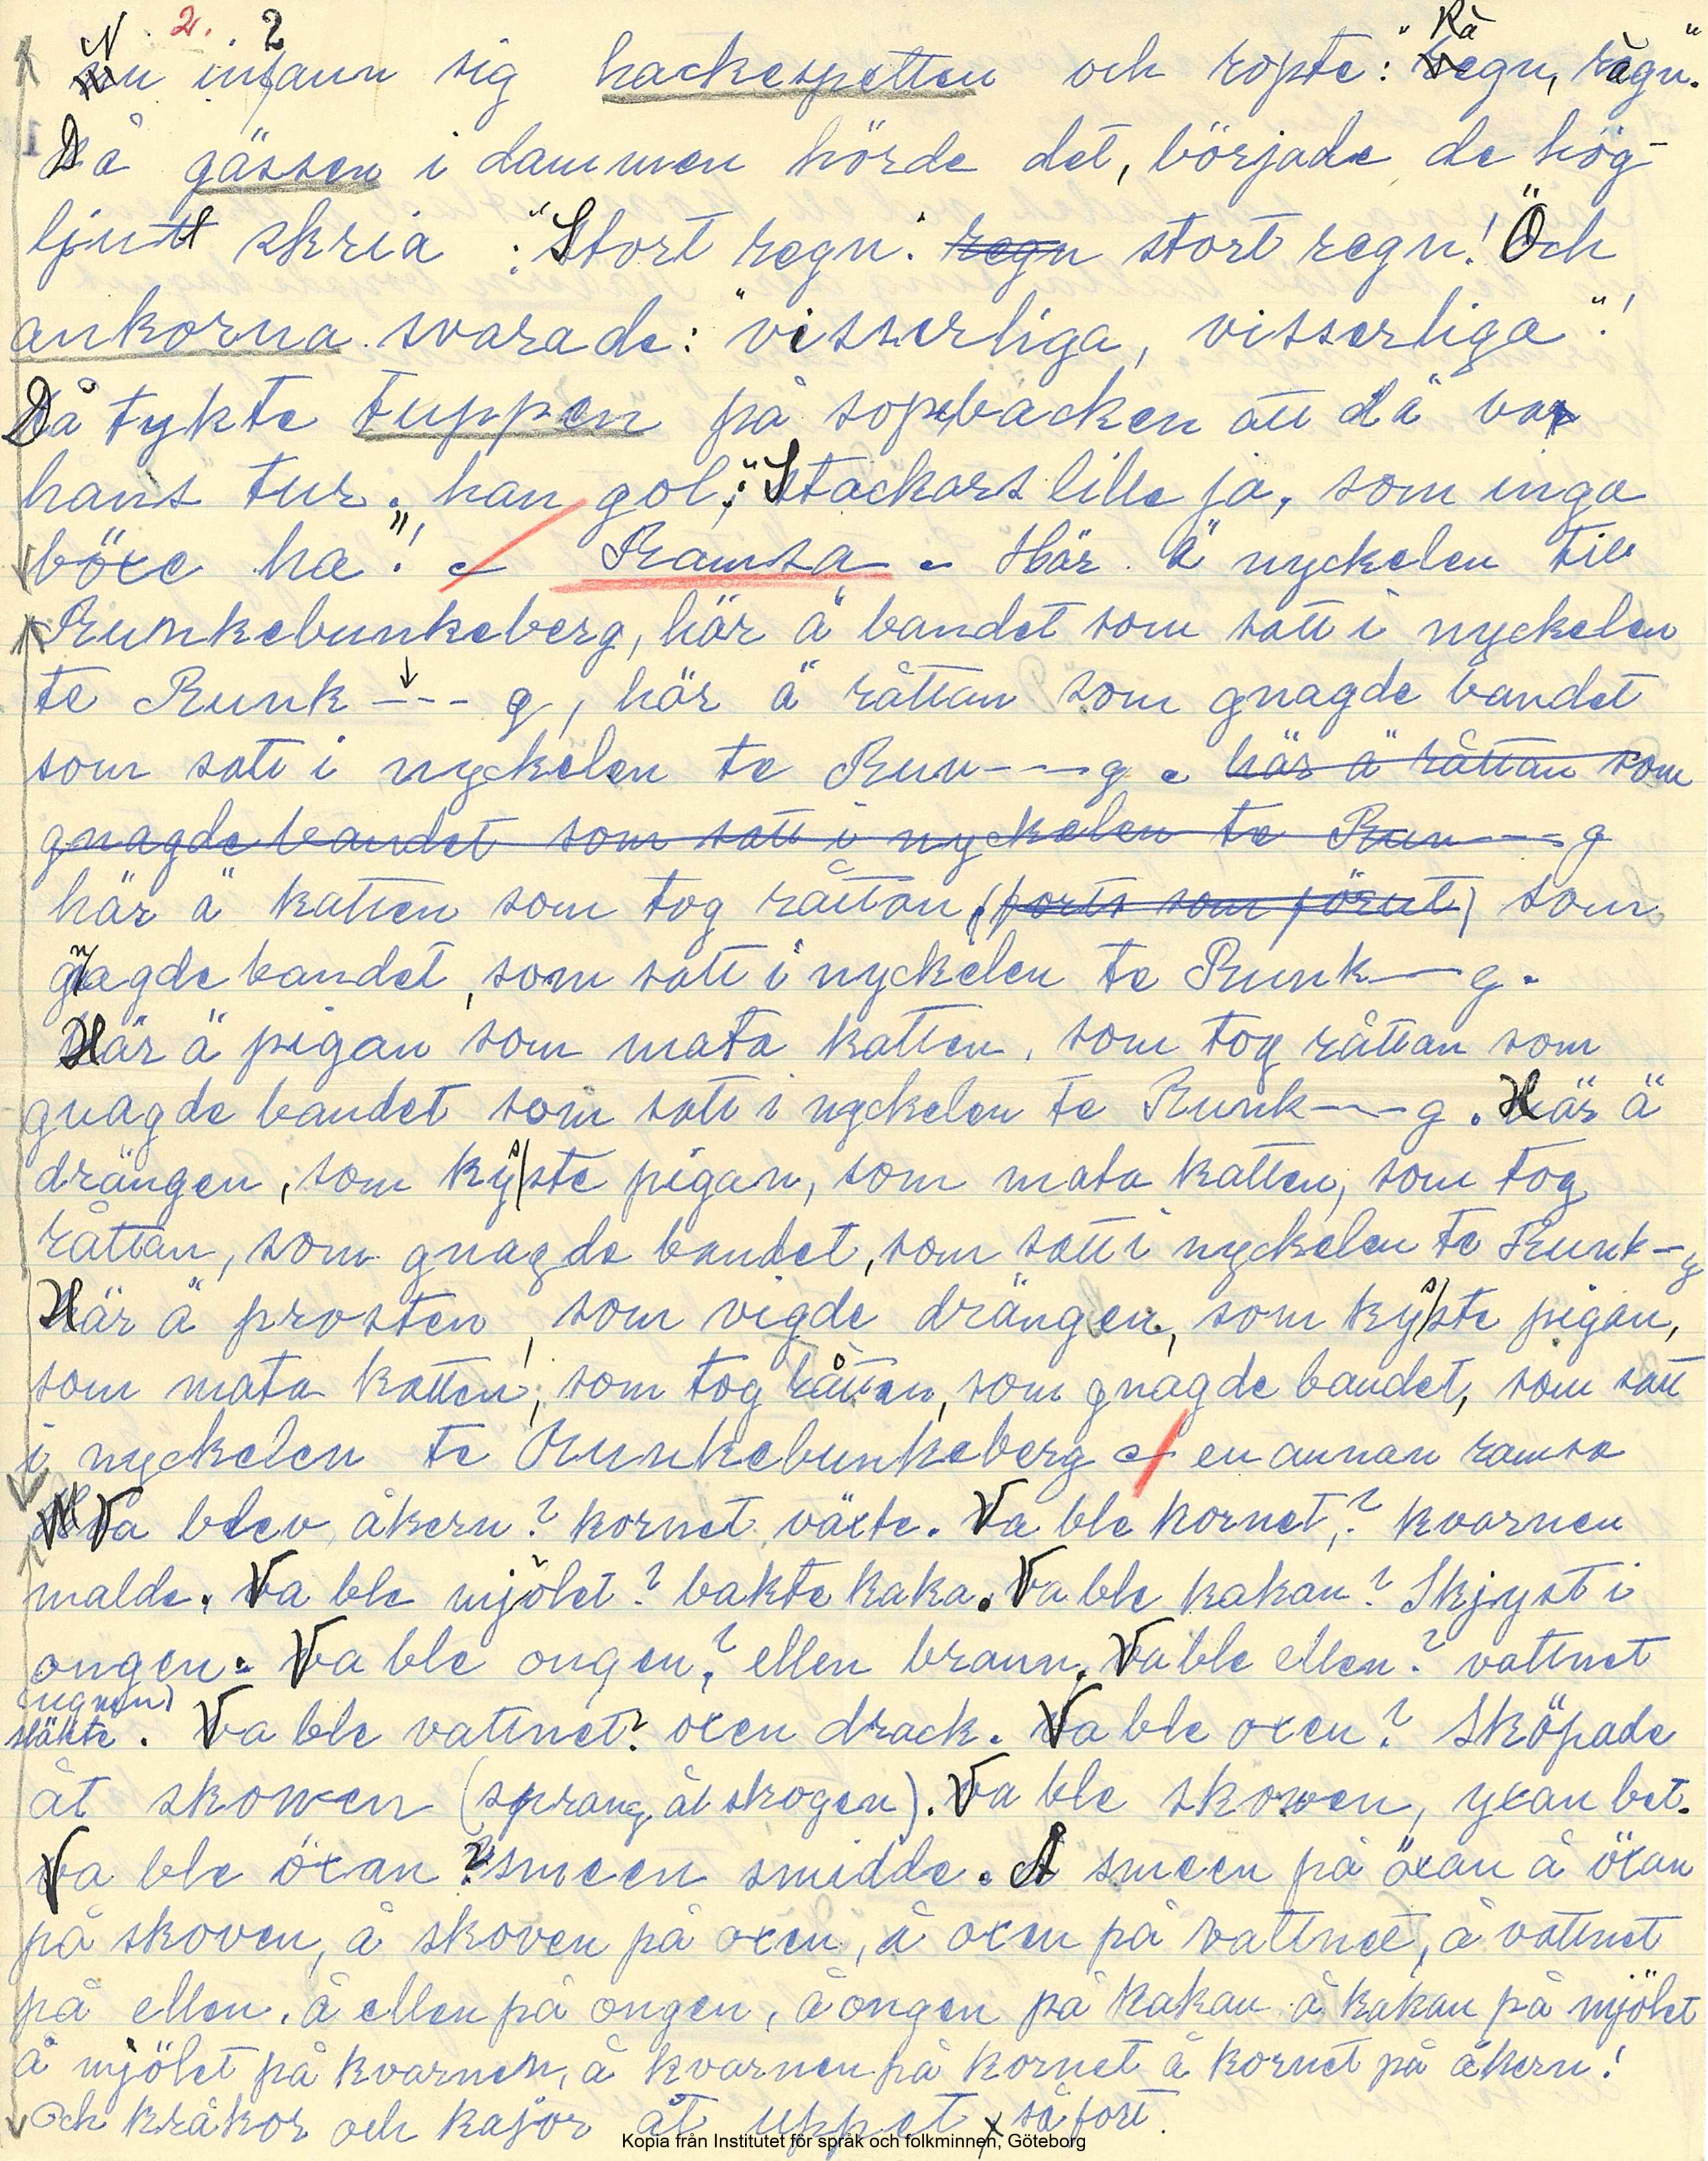 2. 2
Nu infann sig hackespetten och ropte: "Rägn, rägn."
Då gässen i dammen hörde det, började de hög-
ljutt skria : "Stort regn! regn stort regn! Och
ankorna svarade: "visserliga, visserliga"!
Då tykte tuppen på sopbacken att dä va
hans tur. han gol: "Stackars lille ja, som inga
böxe ha"! - Ramsa - Här ä nyckelen till
Runkebunkeberg, här ä bandet som satt i nyckelen
te Runk --- g, här ä råttan som gnagde bandet
som satt i nyckelen te Run --- g. här ä råttan som
gnagde bandet som satt i nyckelen te Run --- g
här ä katten som tog råttan, (forts som förut) som
gnagde bandet, som satt i nyckelen te Runk --- g.
Här ä pigan som mata katten, som tog råttan som
gnagde bandet som satt i nyckelen te Runk --- g. Här ä
drängen, som kysste pigan, som mata katten, som tog
råttan, som gnagde bandet, som satt i nyckelen te Runk - g
Här ä prosten, som vigde drängen, som kysste pigan,
som mata katten, som tog råttan, som gnagde bandet, som satt
i nyckelen te Runkebunkeberg - en annan ramsa
Va blev åkern? kornet växte. Va ble kornet,? kvarnen
malde. Va ble mjölet? bakte kaka. Va ble kakan? Skjyst i
ongen. Va ble ongen? ellen brann. Va ble ellen? vattnet
(ugnen)
släkte. Va ble vattnet? oxen drack. Va ble oxen? Sköpade
åt skowen (sprang åt skogen). Va ble skowen, yxan bet.
Va ble öxan? smeen smidde. Å smeen på öxan å öxan
på skoven, å skoven på oxen, å oxen på vattnet, å vattnet
på ellen, å ellen på ongen, å ongen på kakan å kakan på mjölet
å mjölet på kvarnen, å kvarnen på kornet å kornet på åkern!
Och kråkor och kajor åt uppet så fort.
Kopia från Institutet för språk och folkminnen, Göteborg